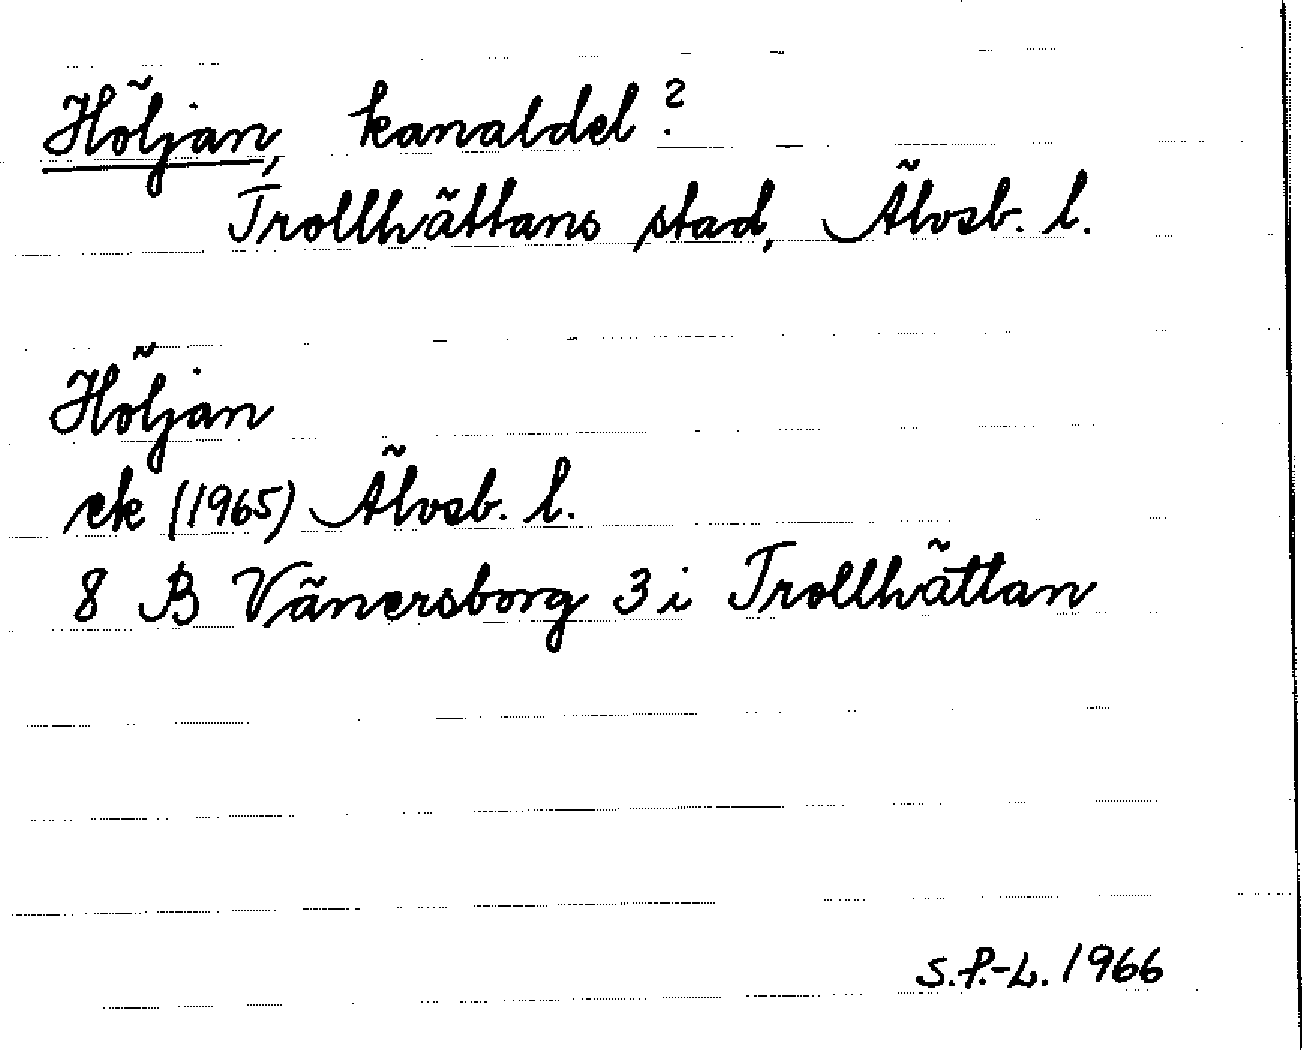 Höljan, kanaldel?
Trollhättans stad, Älvsb. l.
Höljan
ek (1965) Älvsb. l.
8 B Vänersborg 3 i Trollhättan
S.P.-L. 1966